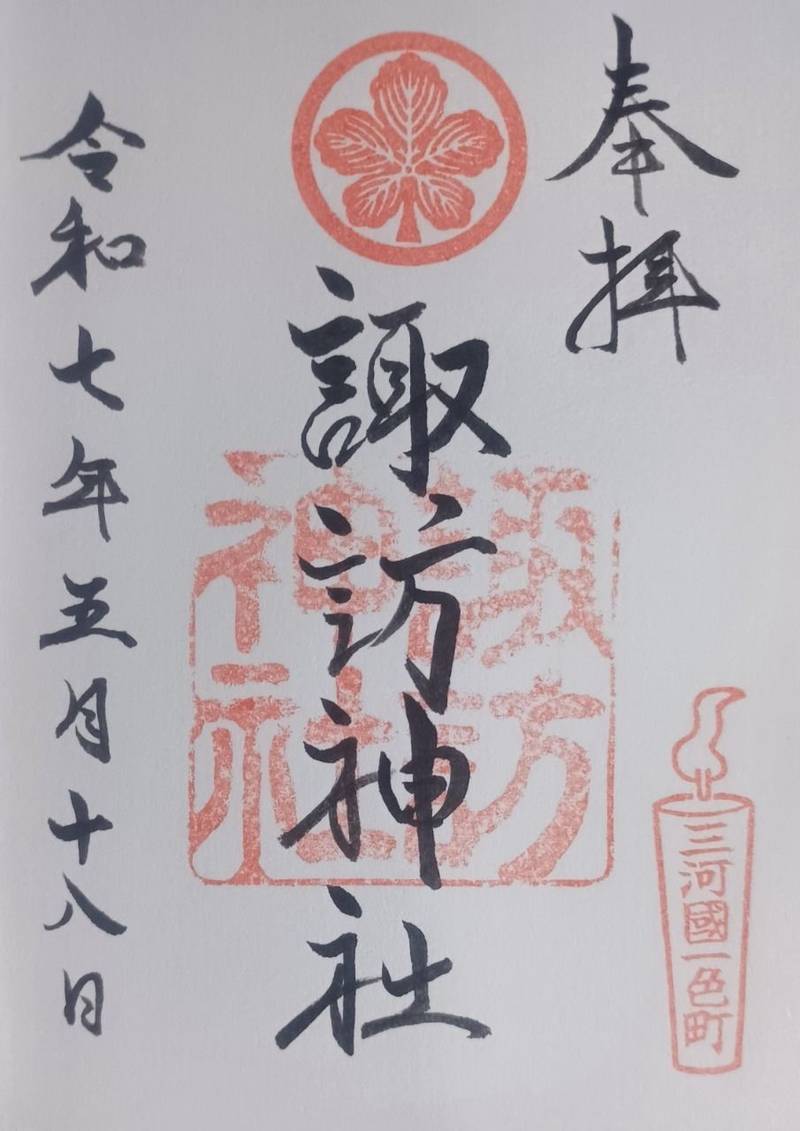 奉拝
諏訪神社
諏訪
神社
三河國一色町
令和七年五月十八日